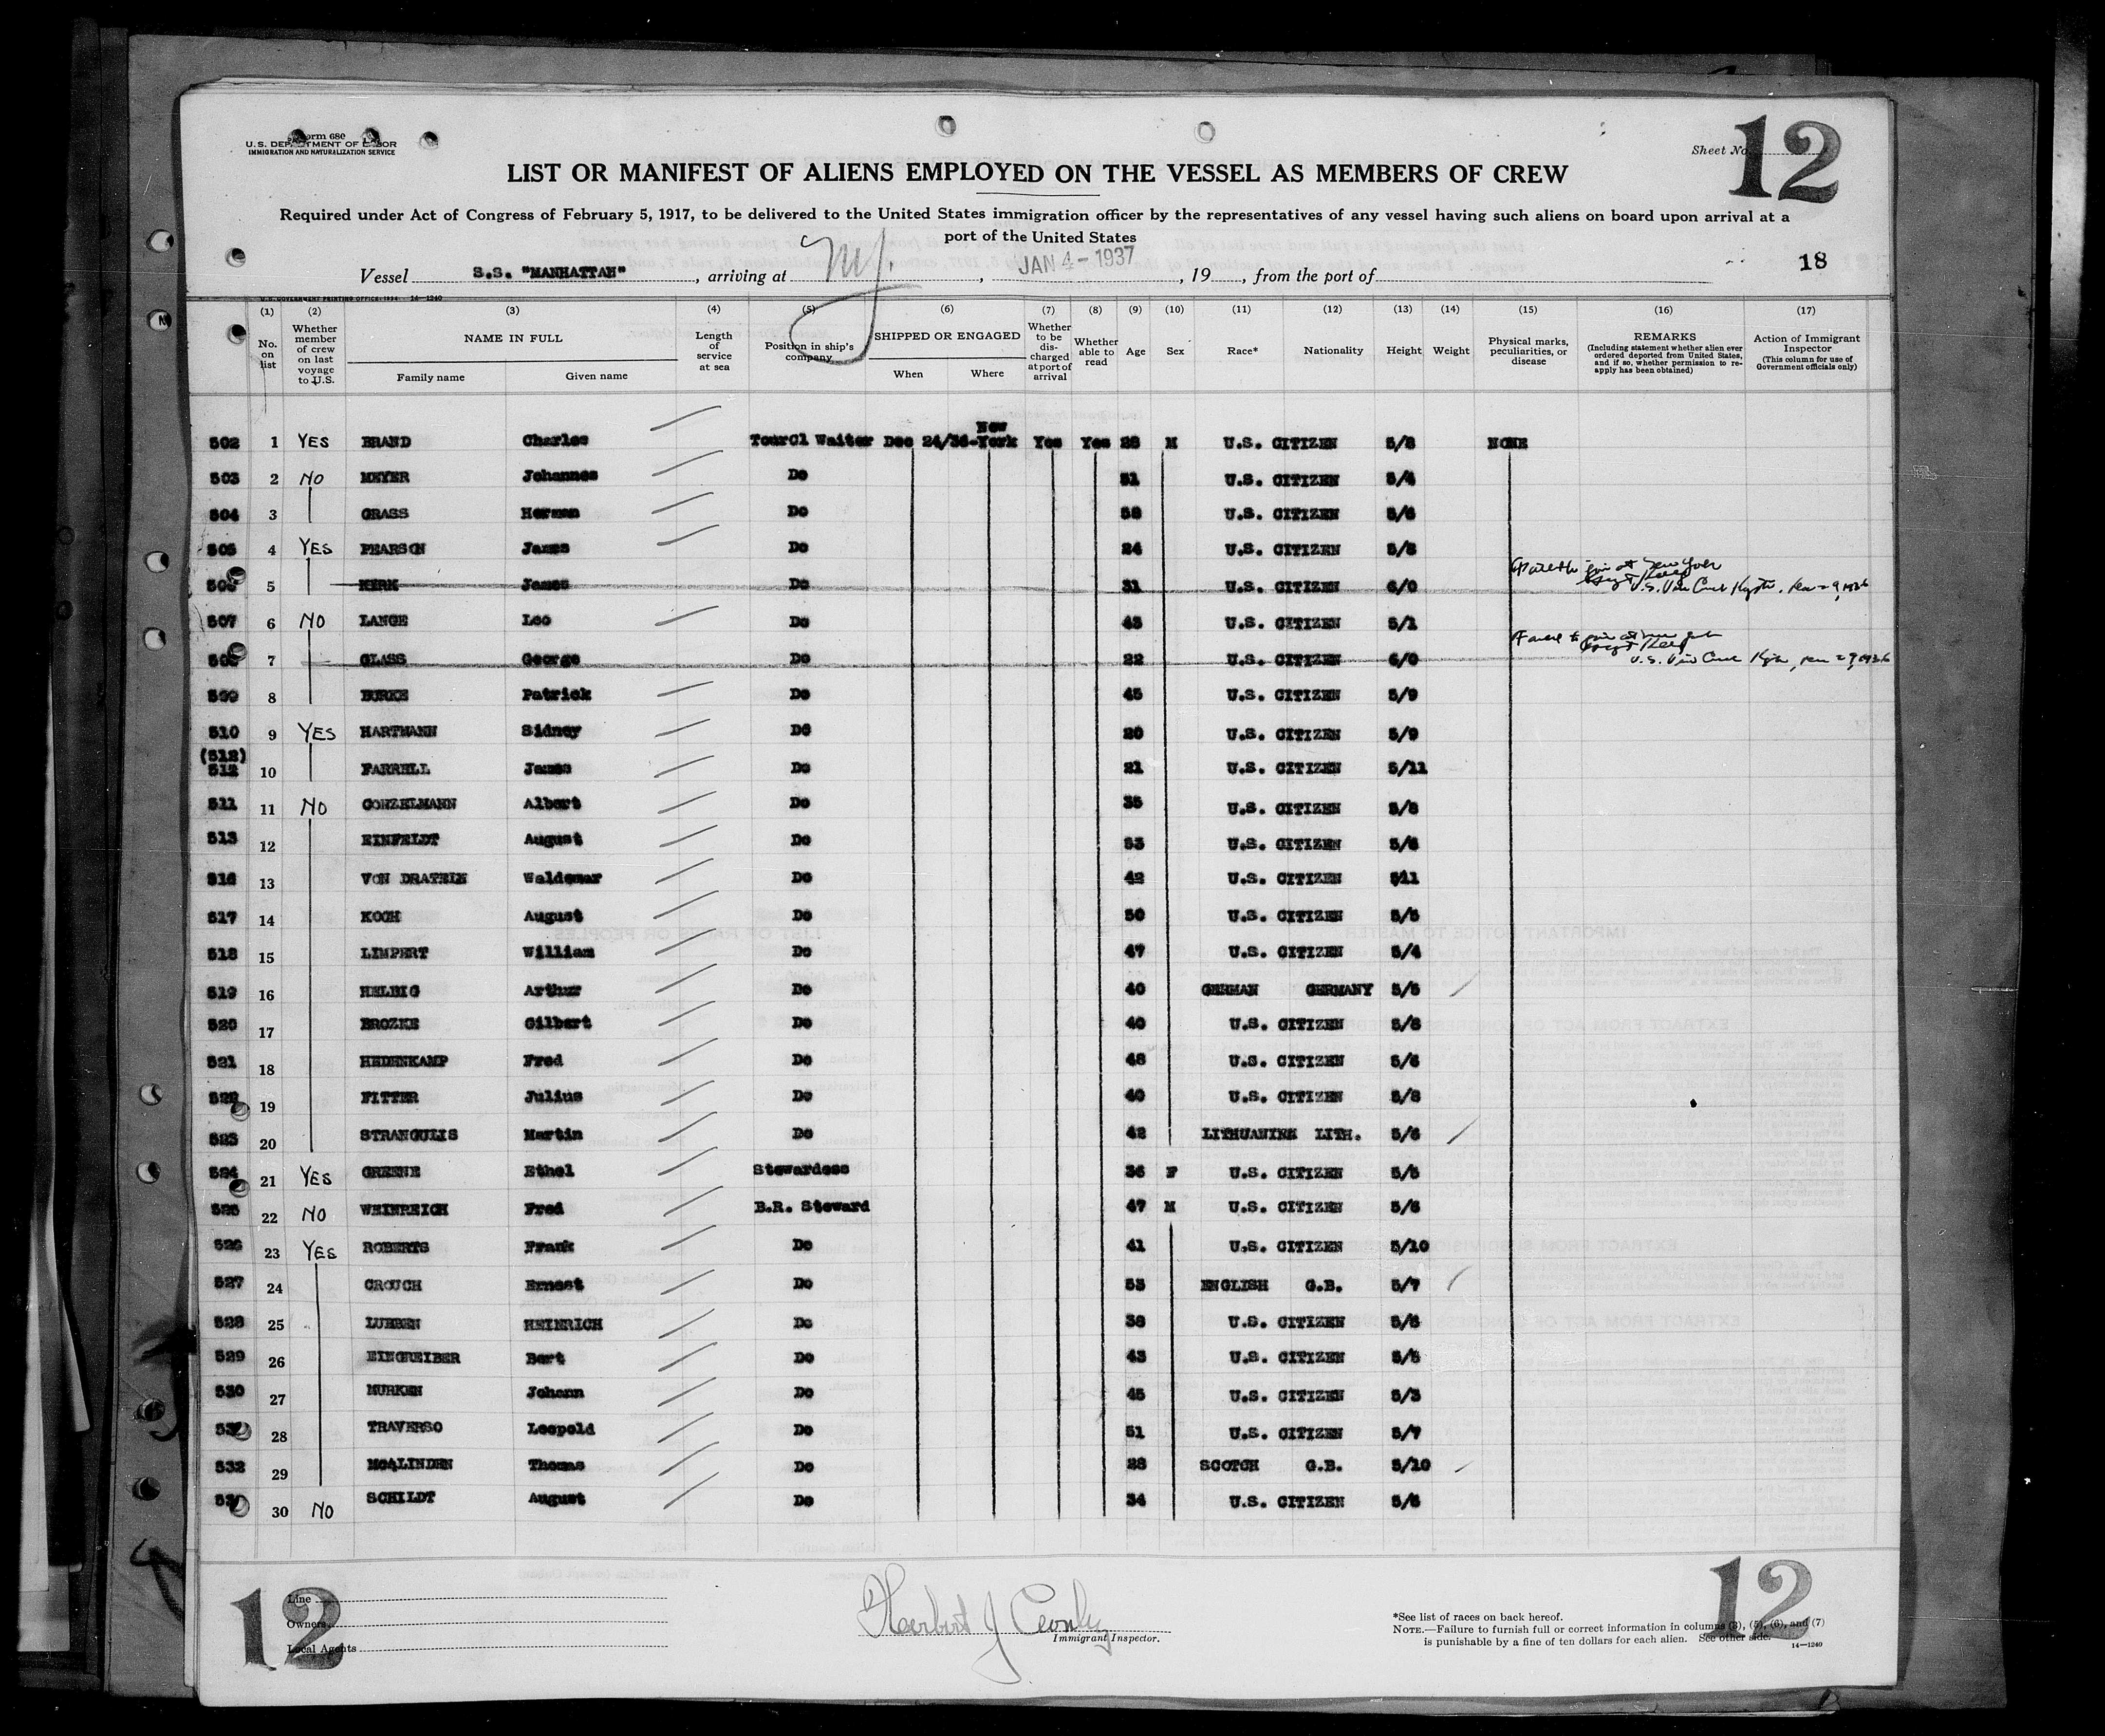 Form 680
U.S. DEPARTMENT OF LABOR
IMMIGRATION AND NATURALIZATION SERVICE
Sheet No. 12
LIST OR MANIFEST OF ALIENS EMPLOYED ON THE VESSEL AS MEMBERS OF CREW
Required under Act of Congress of February 5, 1917, to be delivered to the United States immigration officer by the representatives of any vessel having such aliens on board upon arrival at a
port of the United States
Vessel S.S. "MANHATTAN", arriving at N.Y., JAN 4-1937, 19, from the port of
18
U.S. GOVERNMENT PRINTING OFFICE: 1934 14-1240
(1) No. on list
(2) Whether member of crew on last voyage to U.S.
(3) NAME IN FULL Family name Given name
(4) Length of service at sea
(5) Position in ship's company
(6) SHIPPED OR ENGAGED When Where
(7) Whether to be discharged at port of arrival
(8) Whether able to read
(9) Age
(10) Sex
(11) Race*
(12) Nationality
(13) Height
(14) Weight
(15) Physical marks, peculiarities, or disease
(16) REMARKS (Including statement whether alien ever ordered deported from United States, and if so, whether permission to reapply has been obtained)
(17) Action of Immigrant Inspector (This column for use of Government officials only)
502 1 YES BRAND Charles TourCl Waiter Dec 24/36-New York Yes Yes 28 M U.S. CITIZEN 5/8 NONE
503 2 NO MEYER Johannes Do 51 U.S. CITIZEN 5/4
504 3 GRASS Herman Do 58 U.S. CITIZEN 5/6
505 4 YES PEARSON James Do 24 U.S. CITIZEN 5/8
506 5 KIRK James Do 31 U.S. CITIZEN 6/0
507 6 NO LANGE Leo Do 43 U.S. CITIZEN 5/1
7 GLASS George Do 22 U.S. CITIZEN 6/0
509 8 BURKE Patrick Do 45 U.S. CITIZEN 5/9
510 9 YES HARTMANN Sidney Do 20 U.S. CITIZEN 5/9
(512)
512 10 FARRELL James Do 21 U.S. CITIZEN 5/11
511 11 NO GONZELMANN Albert Do 35 U.S. CITIZEN 5/8
513 12 EINFELDT August Do 53 U.S. CITIZEN 5/6
516 13 VON DRATELN Waldemar Do 42 U.S. CITIZEN 511
517 14 KOCH August Do 50 U.S. CITIZEN 5/5
518 15 LIMPERT William Do 47 U.S. CITIZEN 5/4
519 16 HELBIG Arthur Do 40 GERMAN GERMANY 5/5
520 17 BROZKE Gilbert Do 40 U.S. CITIZEN 5/8
521 18 HEDENKAMP Fred Do 48 U.S. CITIZEN 5/6
522 19 FITTER Julius Do 40 U.S. CITIZEN 5/8
523 20 STRANGULIS Martin Do 42 LITHUANIEN LITH. 5/6
524 21 YES GREENE Ethel Stewardess 36 F U.S. CITIZEN 5/5
525 22 NO WEINREICH Fred B.R. Steward 47 M U.S. CITIZEN 5/6
526 23 YES ROBERTS Frank Do 41 U.S. CITIZEN 5/10
527 24 CROUCH Ernest Do 53 ENGLISH G.B. 5/7
528 25 LUBBEN HEINRICH Do 38 U.S. CITIZEN 5/6
529 26 EINGREIBER Bert Do 43 U.S. CITIZEN 5/5
530 27 MURKEN Johann Do 45 U.S. CITIZEN 5/3
28 TRAVERSO Leopold Do 51 U.S. CITIZEN 5/7
532 29 McALINDEN Thomas Do 28 SCOTCH G.B. 5/10
30 NO SCHILDT August Do 34 U.S. CITIZEN 5/6
12
Line
Owners
Local Agents
Herbert J
Immigrant Inspector.
*See list of races on back hereof.
NOTE.—Failure to furnish full or correct information in columns (3), (5), (6), and (7)
is punishable by a fine of ten dollars for each alien. See other side.
14-1240
12